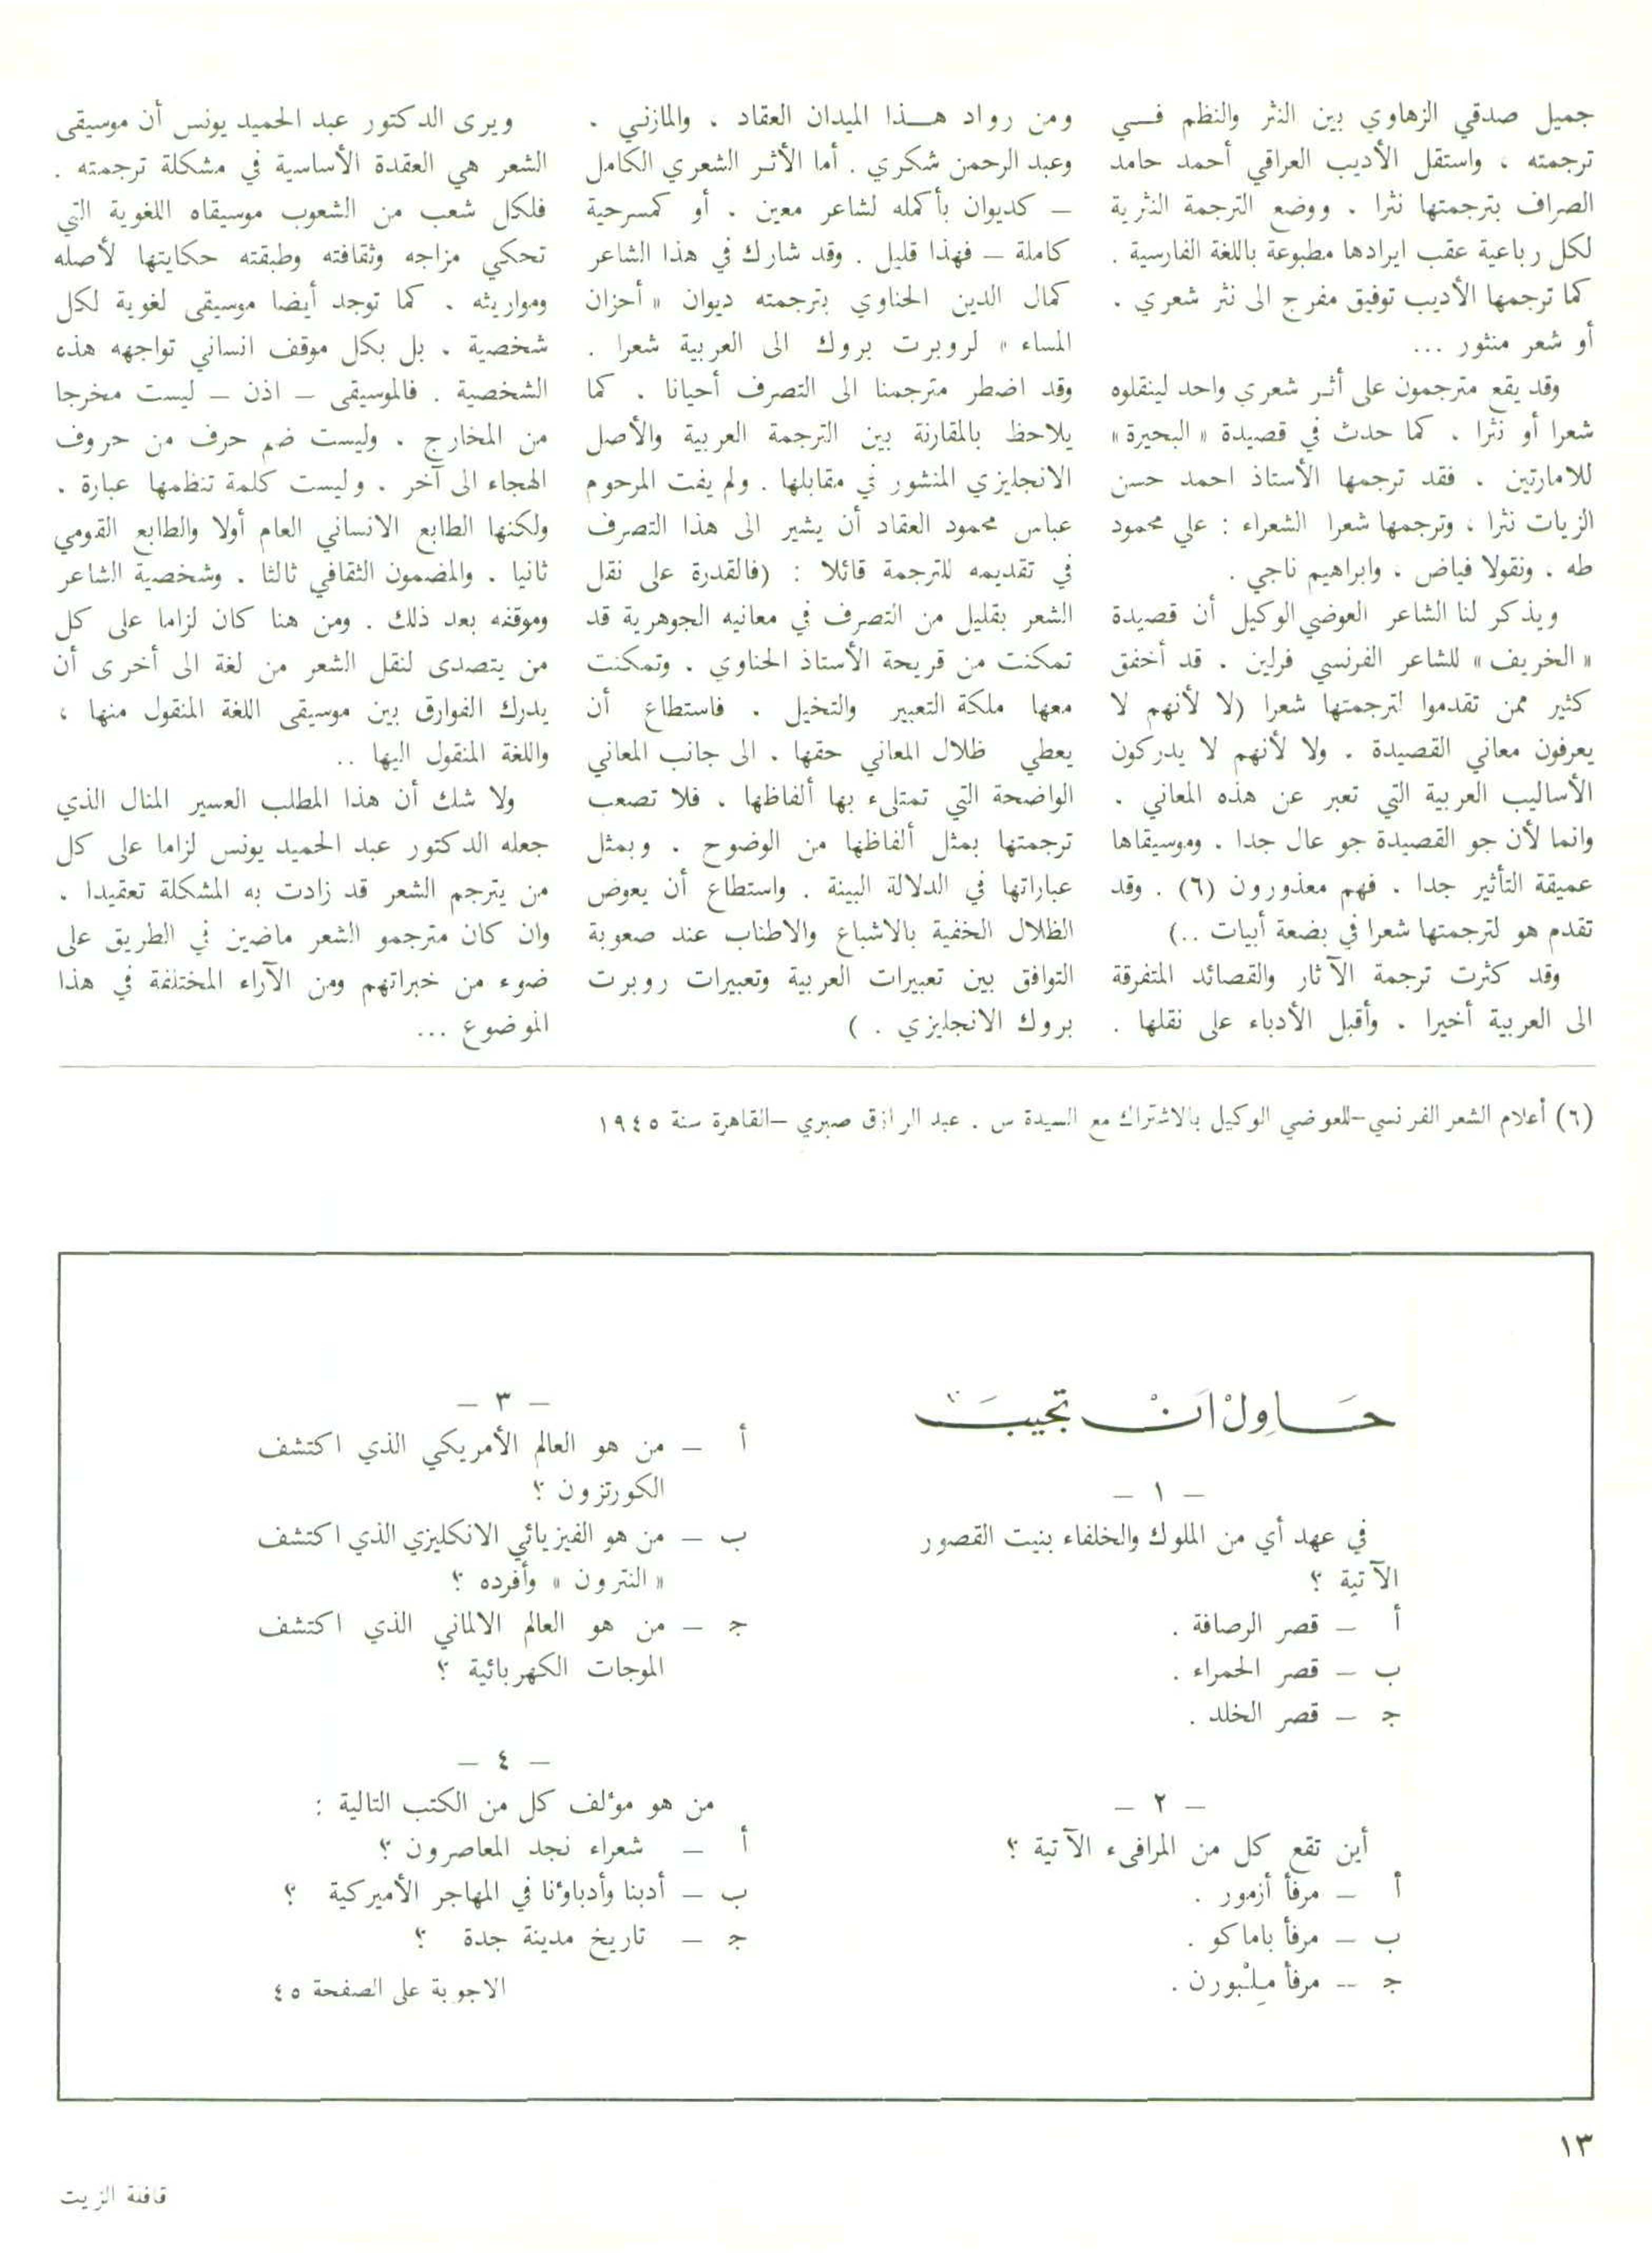 جميل صدقي الزهاوي بين النثر والنظم فـــي
ترجمته ، واستقل الأديب العراقي أحمد حامد
الصراف بترجمتها نثرا . ووضع الترجمة النثرية
لكل رباعية عقب ايرادها مطبوعة باللغة الفارسية .
كما ترجمها الأديب توفيق مفرج الى نثر شعري .
أو شعر منثور ...
وقد يقع مترجمون على أثـر شعري واحد لينقلوه
شعرا أو نثرا . كما حدث في قصيدة « البحيرة »
للامارتين . فقد ترجمها الأستاذ احمد حسن
الزيات نثرا ، وترجمها شعرا الشعراء : علي محمود
طه . ونقولا فياض . وابراهيم ناجي .
ويذكر لنا الشاعر العوضي الوكيل أن قصيدة
« الخريف » للشاعر الفرنسي فرلين . قد أخفق
كثير ممن تقدموا لترجمتها شعرا (لا لأنهم لا
يعرفون معاني القصيدة . ولا لأنهم لا يدركون
الأساليب العربية التي تعبر عن هذه المعاني .
وانما لأن جو القصيدة جو عال جدا . وموسيقاها
عميقة التأثير جدا . فهم معذورون (٦) . وقد
تقدم هو لترجمتها شعرا في بضعة أبيات ..)
وقد كثرت ترجمة الآثار والقصائد المتفرقة
الى العربية أخيرا . وأقبل الأدباء على نقلها .
ومن رواد هـــذا الميدان العقاد . والمازنـي .
وعبد الرحمن شكري . أما الأثـر الشعري الكامل
– كديوان بأكمله لشاعر معين . أو كمسرحية
كاملة – فهذا قليل . وقد شارك في هذا الشاعر
كمال الدين الحناوي بترجمته ديوان « أحزان
المساء » لروبرت بروك الى العربية شعرا .
وقد اضطر مترجمنا الى التصرف أحيانا . كما
يلاحظ بالمقارنة بين الترجمة العربية والأصل
الانجليزي المنشور في مقابلها . ولم يفت المرحوم
عباس محمود العقاد أن يشير الى هذا التصرف
في تقديمه للترجمة قائلا : (فالقدرة على نقل
الشعر بقليل من التصرف في معانيه الجوهرية قد
تمكنت من قريحة الأستاذ الحناوي . وتمكنت
معها ملكة التعبير والتخيل . فاستطاع أن
يعطي ظلال المعاني حقها . الى جانب المعاني
الواضحة التي تمتلىء بها ألفاظها . فلا تصعب
ترجمتها بمثل ألفاظها من الوضوح . وبمثل
عباراتها في الدلالة البينة . واستطاع أن يعوض
الظلال الخفية بالاشباع والاطناب عند صعوبة
التوافق بين تعبيرات العربية وتعبيرات روبرت
بروك الانجليزي . )
ويرى الدكتور عبد الحميد يونس أن موسيقى
الشعر هي العقدة الأساسية في مشكلة ترجمته .
فلكل شعب من الشعوب موسيقاه اللغوية التي
تحكي مزاجه وثقافته وطبقته حكايتها لأصله
ومواريثه . كما توجد أيضا موسيقى لغوية لكل
شخصية . بل بكل موقف انساني تواجهه هذه
الشخصية . فالموسيقى – اذن – ليست مخرجا
من المخارج . وليست ضم حرف من حروف
الهجاء الى آخر . وليست كلمة تنظمها عبارة .
ولكنها الطابع الانساني العام أولا والطابع القومي
ثانيا . والمضمون الثقافي ثالثا . وشخصية الشاعر
وموقفه بعد ذلك . ومن هنا كان لزاما على كل
من يتصدى لنقل الشعر من لغة الى أخرى أن
يدرك الفوارق بين موسيقى اللغة المنقول منها ،
واللغة المنقول اليها ..
ولا شك أن هذا المطلب العسير المنال الذي
جعله الدكتور عبد الحميد يونس لزاما على كل
من يترجم الشعر قد زادت به المشكلة تعقيدا .
وان كان مترجمو الشعر ماضين في الطريق على
ضوء من خبراتهم ومن الآراء المختلفة في هذا
الموضوع ...
(٦) أعلام الشعر الفرنسي–للعوضي الوكيل بالاشتراك مع السيدة س . عبد الرازق صبري –القاهرة سنة ١٩٤٥
حَـاوِلْ اَنْ تجيبَ
– ١ –
في عهد أي من الملوك والخلفاء بنيت القصور
الآتية ؟
أ – قصر الرصافة .
ب – قصر الحمراء .
ج – قصر الخلد .
– ٢ –
أين تقع كل من المرافىء الآتية ؟
أ – مرفأ أزمور .
ب – مرفأ باماكو .
ج – مرفأ مِلْبورن .
– ٣ –
أ – من هو العالم الأمريكي الذي اكتشف
الكورتزون ؟
ب – من هو الفيزيائي الانكليزي الذي اكتشف
« النترون » وأفرده ؟
ج – من هو العالم الالماني الذي اكتشف
الموجات الكهربائية ؟
– ٤ –
من هو مؤلف كل من الكتب التالية :
أ – شعراء نجد المعاصرون ؟
ب – أدبنا وأدباؤنا في المهاجر الأميركية ؟
ج – تاريخ مدينة جدة ؟
الاجوبة على الصفحة ٤٥
١٣
قافلة الزيت